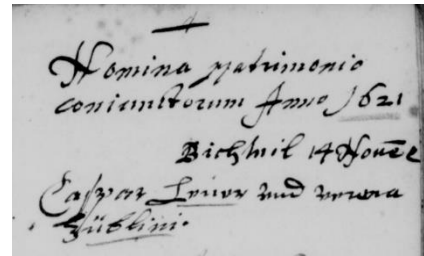 Nomina matrimonio
coniunctorum Anno 1621
Bichwil 14 Novē
Caspar und verena
Züblini.